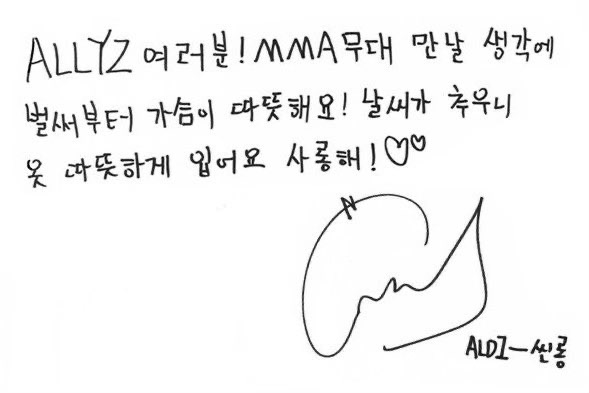 ALLYZ 여러분! MMA무대 만날 생각에
벌써부터 가슴이 따뜻해요! 날씨가 추우니
옷 따뜻하게 입어요 사롱해!♡♡
ALD1–씬롱